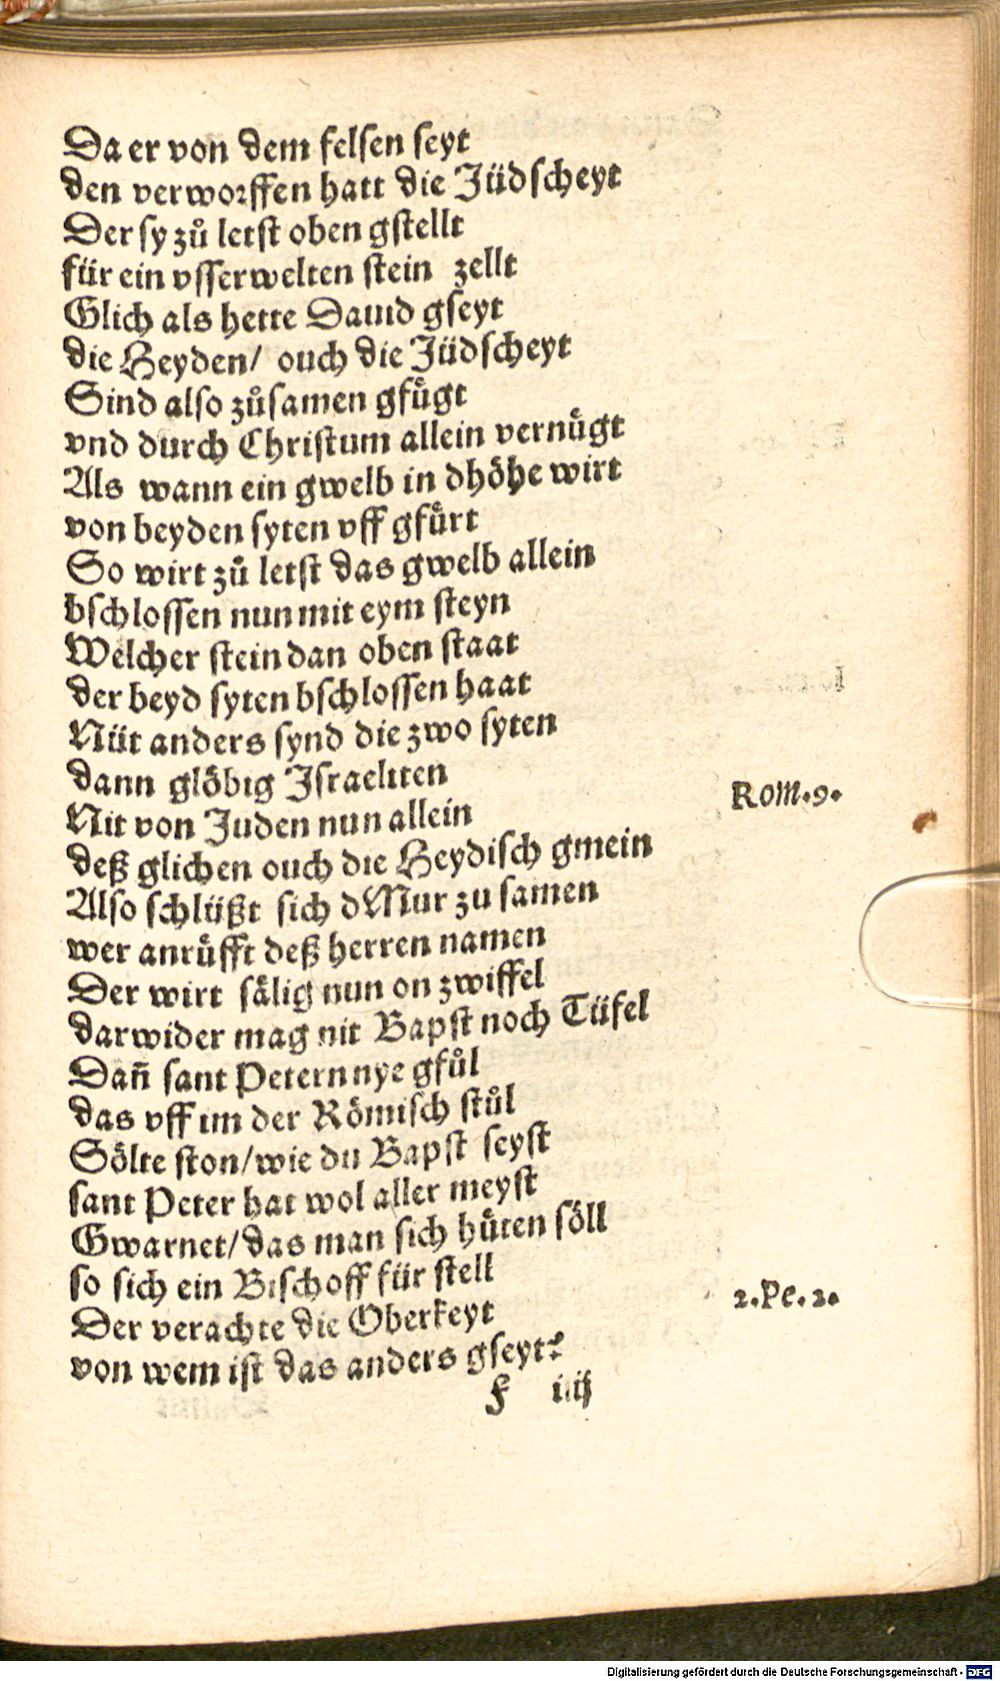 Da er von dem felsen seyt
den verworffen hatt die Jüdscheyt
Der sy zů letst oben gstellt
für ein vsserwelten stein zellt
Glich als hette Dauid gseyt
die Heyden/ ouch die Jüdscheyt
Sind also zůsamen gfůgt
vnd durch Christum allein vernůgt
Als wann ein gwelb in dhöhe wirt
von beyden syten vff gfůrt
So wirt zů letst das gwelb allein
bschlossen nun mit eym steyn
Welcher stein dan oben staat
der beyd syten bschlossen haat
Nüt anders synd die zwo syten
dann glöbig Israeliten
Nit von Juden nun allein
deß glichen ouch die Heydisch gmein
Also schlüßt sich dMur zu samen
wer anrůfft deß herren namen
Der wirt sälig nun on zwiffel
darwider mag nit Bapst noch Tüfel
Dañ sant Petern nye gfůl
das vff im der Römisch stůl
Sölte ston/wie du Bapst seyst
sant Peter hat wol aller meyst
Gwarnet/das man sich hůten söll
so sich ein Bischoff für stell
Der verachte die Oberkeyt
von wem ist das anders gseyt?
F iiij
Rom.9.
2.Pe.2.
Digitalisierung gefördert durch die Deutsche Forschungsgemeinschaft - DFG